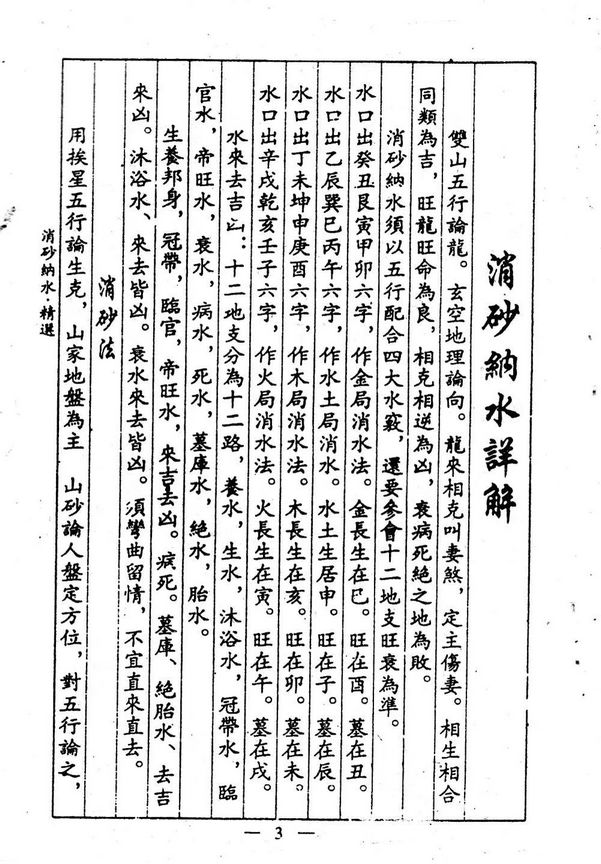 消砂納水詳解
雙山五行論龍。玄空地理論向。龍來相克叫妻煞，定主傷妻。相生相合
同類為吉，旺龍旺命為良，相克相逆為凶，衰病死絕之地為敗。
消砂納水須以五行配合四大水竅，還要參會十二地支旺衰為準。
水口出癸丑艮寅甲卯六字，作金局消水法。金長生在巳。旺在酉。墓在丑。
水口出乙辰巽巳丙午六字，作水土局消水。水土生居申。旺在子。墓在辰。
水口出丁未坤申庚酉六字，作木局消水法。木長生在亥。旺在卯。墓在未。
水口出辛戌乾亥壬子六字，作火局消水法。火長生在寅。旺在午。墓在戌。
水來去吉凶：十二地支分為十二路，養水，生水，沐浴水，冠帶水，臨
官水，帝旺水，衰水，病水，死水，墓庫水，絕水，胎水。
生養邦身，冠帶，臨官，帝旺水，來吉去凶。病死。墓庫、絕胎水、去吉
來凶。沐浴水、來去皆凶。衰水來去皆凶。須彎曲留情，不宜直來直去。
消砂法
用挨星五行論生克，山家地盤為主 山砂論人盤定方位，對五行論之，
消砂納水·精選
— 3 —